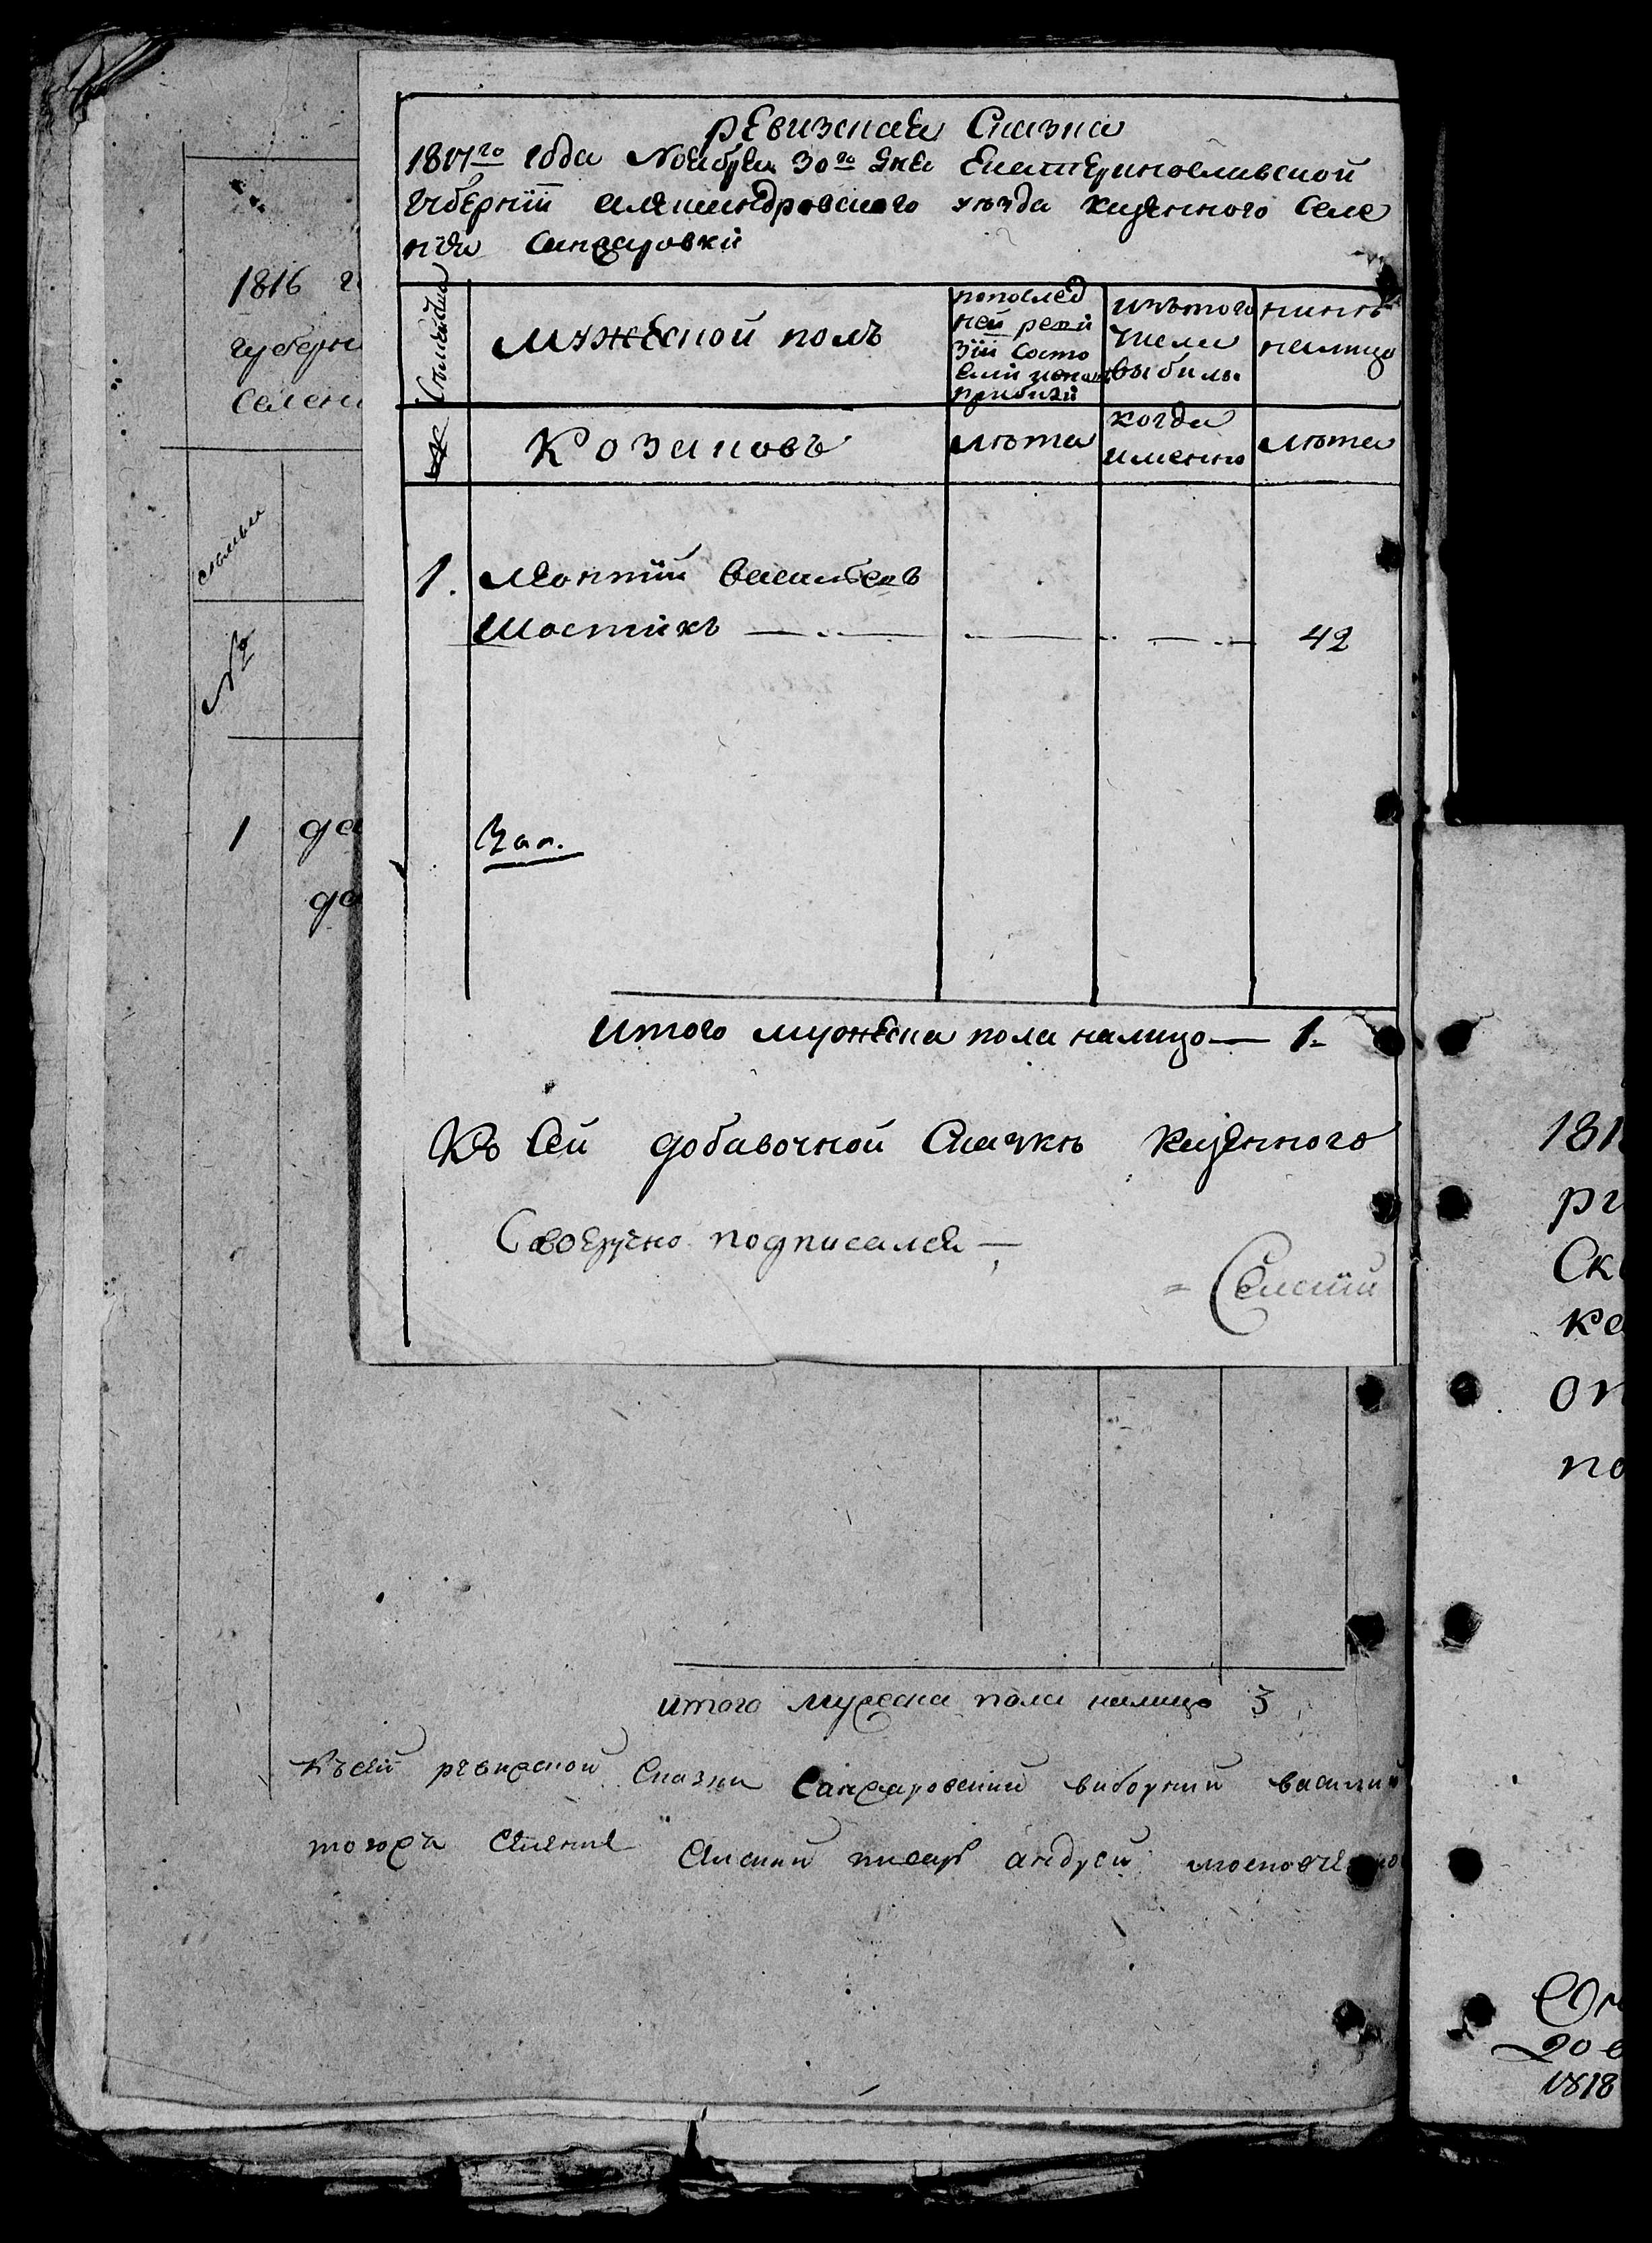 ревизская Сказка
1817го года Ноября 30го дня Екатеринославской
губернїи александровского уезда казенного Селе
нїя Санжаровки
Семейства
мужеской полъ
попослед
ней реви
зїи Состо
яли
прибили
исътого
числа
выбыли
нинѣ
налицо
№
Козаковъ
лѣта
когда
именно
лѣта
1. Леонтїй васильевъ
Шостикъ 42
Зап.
Итого мужеска пола налицо — 1.
Къ Сей добавочной Сказкѣ казенного
Своеручно подписался —
= Селскїй
1816 го
губерни
Селени
семьи
№
1
итого мужеска пола налицо 3
Къ сей ревизской Сказки Санжаровский виборний василий
тогожъ Селения Селский писарь андрей
181
рг
Ск
ке
оп
по
20
1818